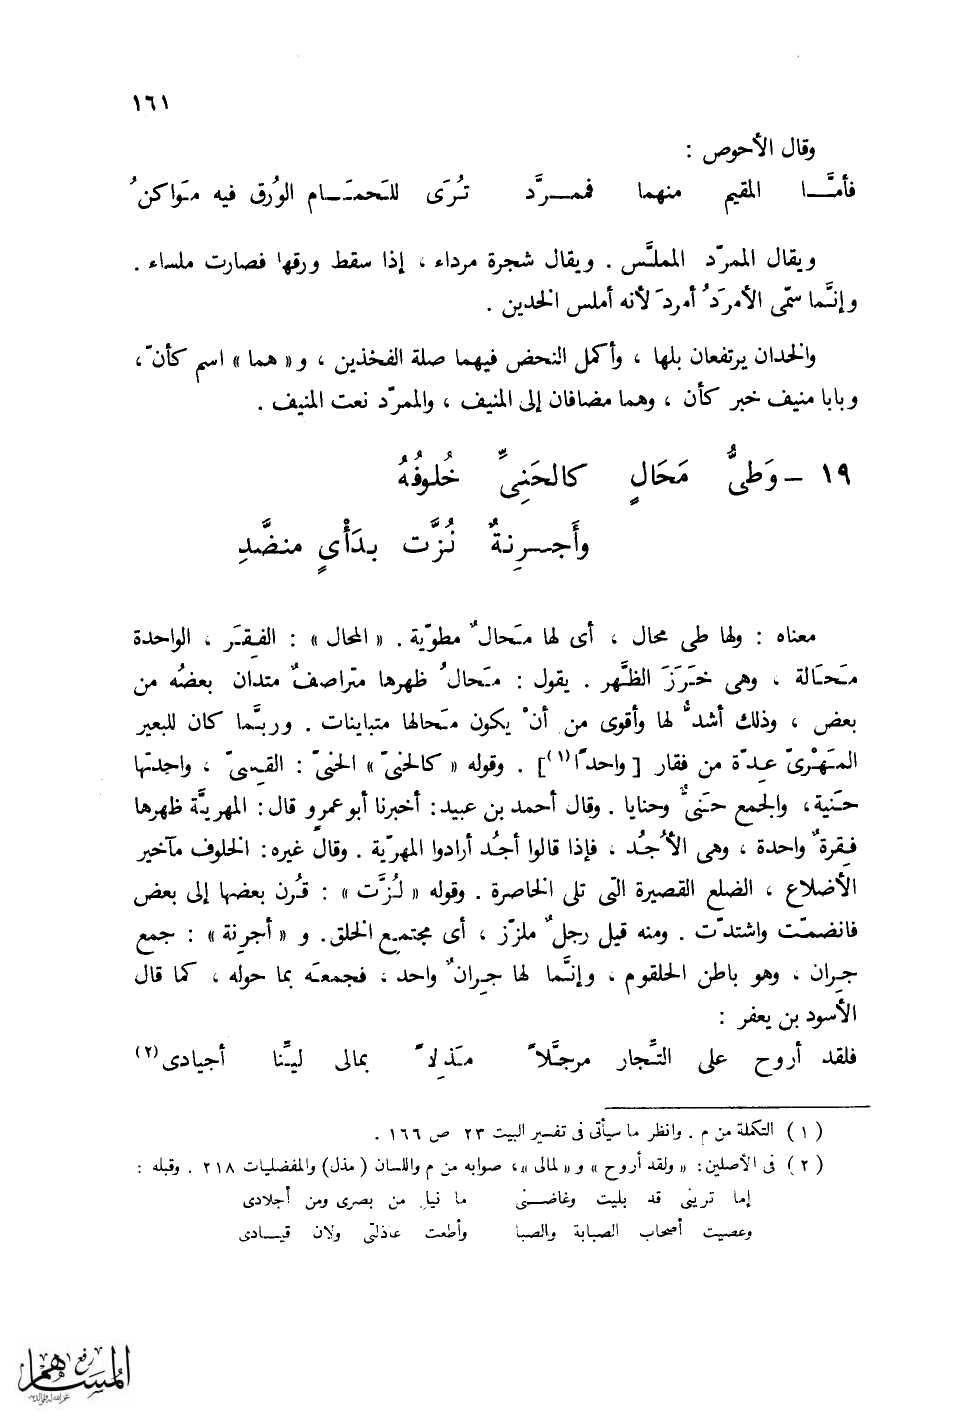 ١٦١
وقال الأحوص :
فأمَّا المقيم منهما فممرَّد تُرَى للحَمَام الوُرق فيه مَواكنُ
ويقال الممرّد المملَّس . ويقال شجرة مرداء ، إذا سقط ورقها فصارت ملساء .
وإنَّما سمّى الأمرَدُ أمردَ لأنه أملس الخدين .
والخدان يرتفعان بلها ، وأكمل النحض فيهما صلة الفخذين ، و « هما » اسم كأنّ ،
وبابا منيف خبر كأن ، وهما مضافان إلى المنيف ، والممرّد نعت المنيف .
١٩ – وَطىُّ مَحَالٍ كالحَنِىِّ خُلوفُهُ
وأَجرِنةٌ لُزَّت بدَأْىٍ منضَّدِ
معناه : ولها طى محال ، أى لها مَحالٌ مطويّة . « المحال » : الفِقَر ، الواحدة
مَحَالة ، وهى خَرَزَ الظَّهر . يقول : مَحالُ ظهرها متراصفٌ متدان بعضُه من
بعض ، وذلك أشدُّ لها وأقوى من أنْ يكون مَحالها متباينات . وربَّما كان للبعير
المَهْرىّ عِدّة من فقار [ واحدًا(١)] . وقوله « كالحنىّ » الحنىّ : القِسىّ ، واحدتها
حنَية، والجمع حَنىٌّ وحنايا . وقال أحمد بن عبيد: أخبرنا أبو عمرٍو قال: المهريَّة ظهرها
فِقرةٌ واحدة ، وهى الأُجُد ، فإذا قالوا أجُد أرادوا المهريّة . وقال غيره: الخلوف مآخير
الأضلاع ، الضلع القصيرة التى تلى الخاصرة . وقوله « لُزَّت » : قُرن بعضها إلى بعض
فانضمّت واشتدّت . ومنه قيل رجلٌ ملزّز ، أى مجتمِع الخلق. و « أجرنة » : جمع
جِران ، وهو باطن الحلقوم ، وإنَّما لها جِرانٌ واحد ، فجمعَه بما حوله ، كما قال
الأسود بن يعفر :
فلقد أروح على التِّجار مرجَّلاً مَذِلاً بمالى ليِّنا أجيادى(٢)
( ١ ) التكملة من م . وانظر ما سيأتى فى تفسير البيت ٢٣ ص ١٦٦ .
( ٢ ) فى الأصلين: « ولقد أروح » و « لمالى »، صوابه من م واللسان ( مذل) والمفضليات ٢١٨ . وقبله :
إما ترينى قد بليت وغاضنى ما نيل من بصرى ومن أجلادى
وعصيت أصحاب الصبابة والصبا وأطعت عاذلتى ولان قيادى